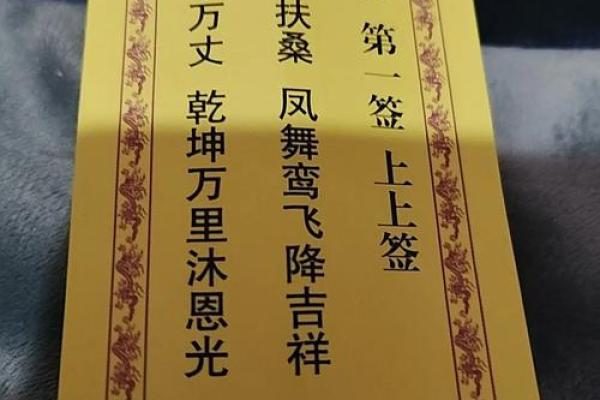 第一签 上上签
扶桑 凤舞鸾飞降吉祥
万丈 乾坤万里沐恩光